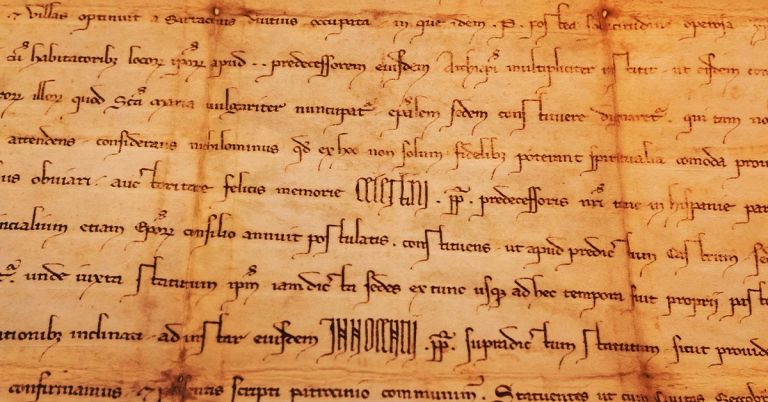 ⁊ villas optinuit a Sarracenis diutius occupata . in que idem . P . postea sollicitudine operosa
habitatoribꝫ locorꝝ ip̄orꝝ apud . . predecessorem eiusdem Archiep̄i multipliciter institit . ut eisdem
illorꝝ quod Sc̄a Maria uulgariter nuncupatr̄ . ep̄alem sedem constituere dignaretr̄ . qui tam
attendens . considerans nichilominus qd̄ ex hoc non solum fidelibꝫ poterant spiritualia comoda
obuiari . auctoritate felicis memorie Celestini . pp̄ . predecessoris nr̄i tunc in hispanie
etiam Ep̄orꝝ consilio annuit postulatis . constituens . ut apud predictum Castrum
unde iuxta statutum ip̄ius iamdicta sedes ex tunc usqꝫ ad hec tempora fuit proprii
inclinati . ad instar eiusdem INNOCENTII . pp̄ . supradictum statutum . sicut
confirmamus . ⁊ scripti patrocinio communimꝰ . Statuentes ut cum Ciuitas